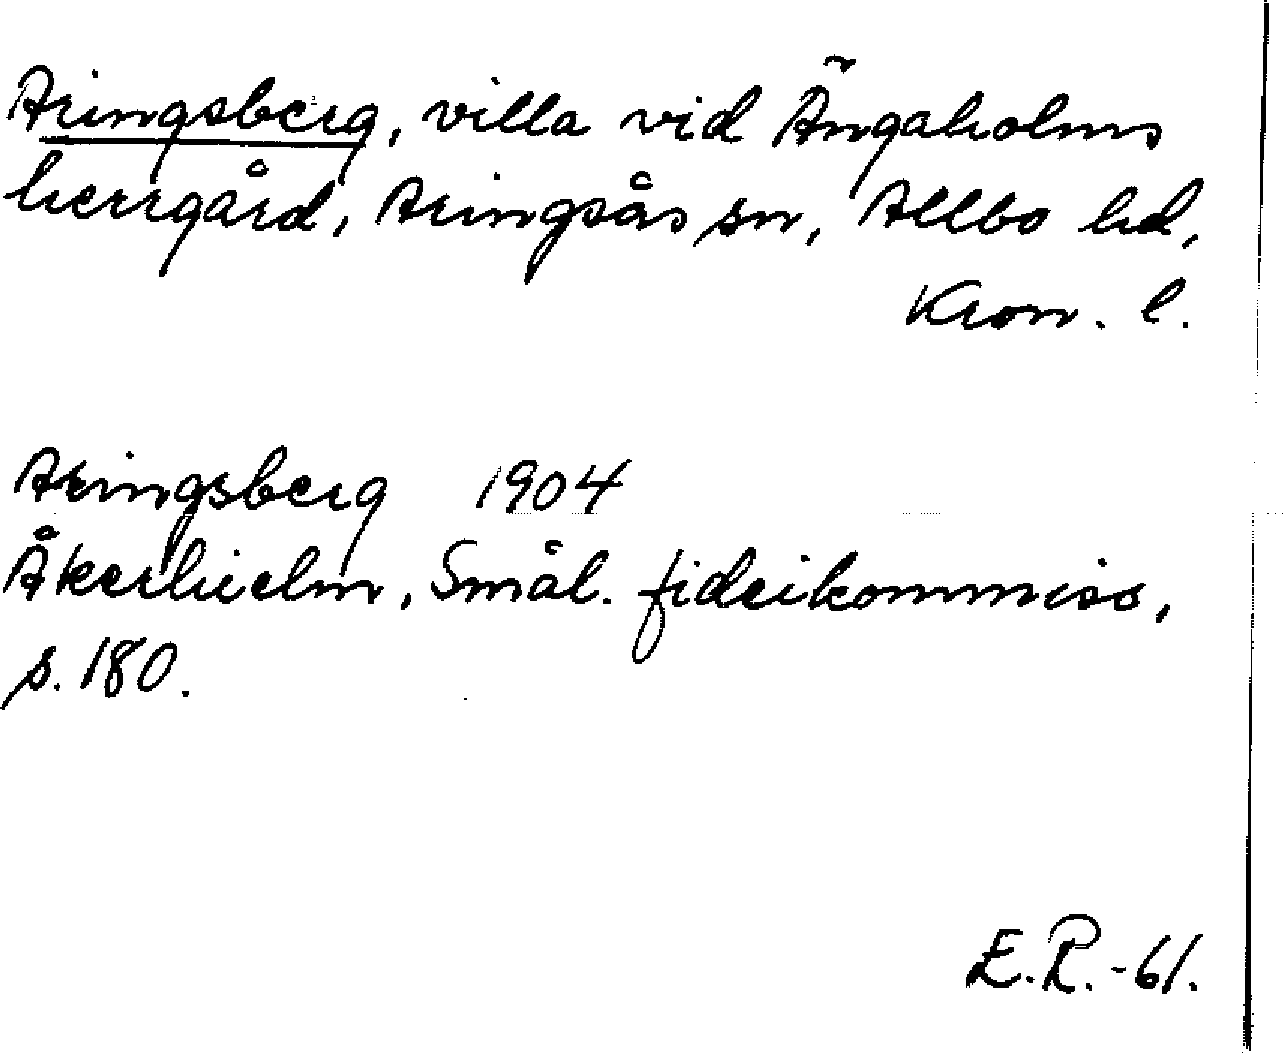 Aringsberg, villa vid Ängaholms
herrgård, Aringsås sn, Allbo hd,
Kron. l.
Aringsberg 1904
Åkerhielm, Smål. fideikommiss,
s. 180.
E.R.-61.